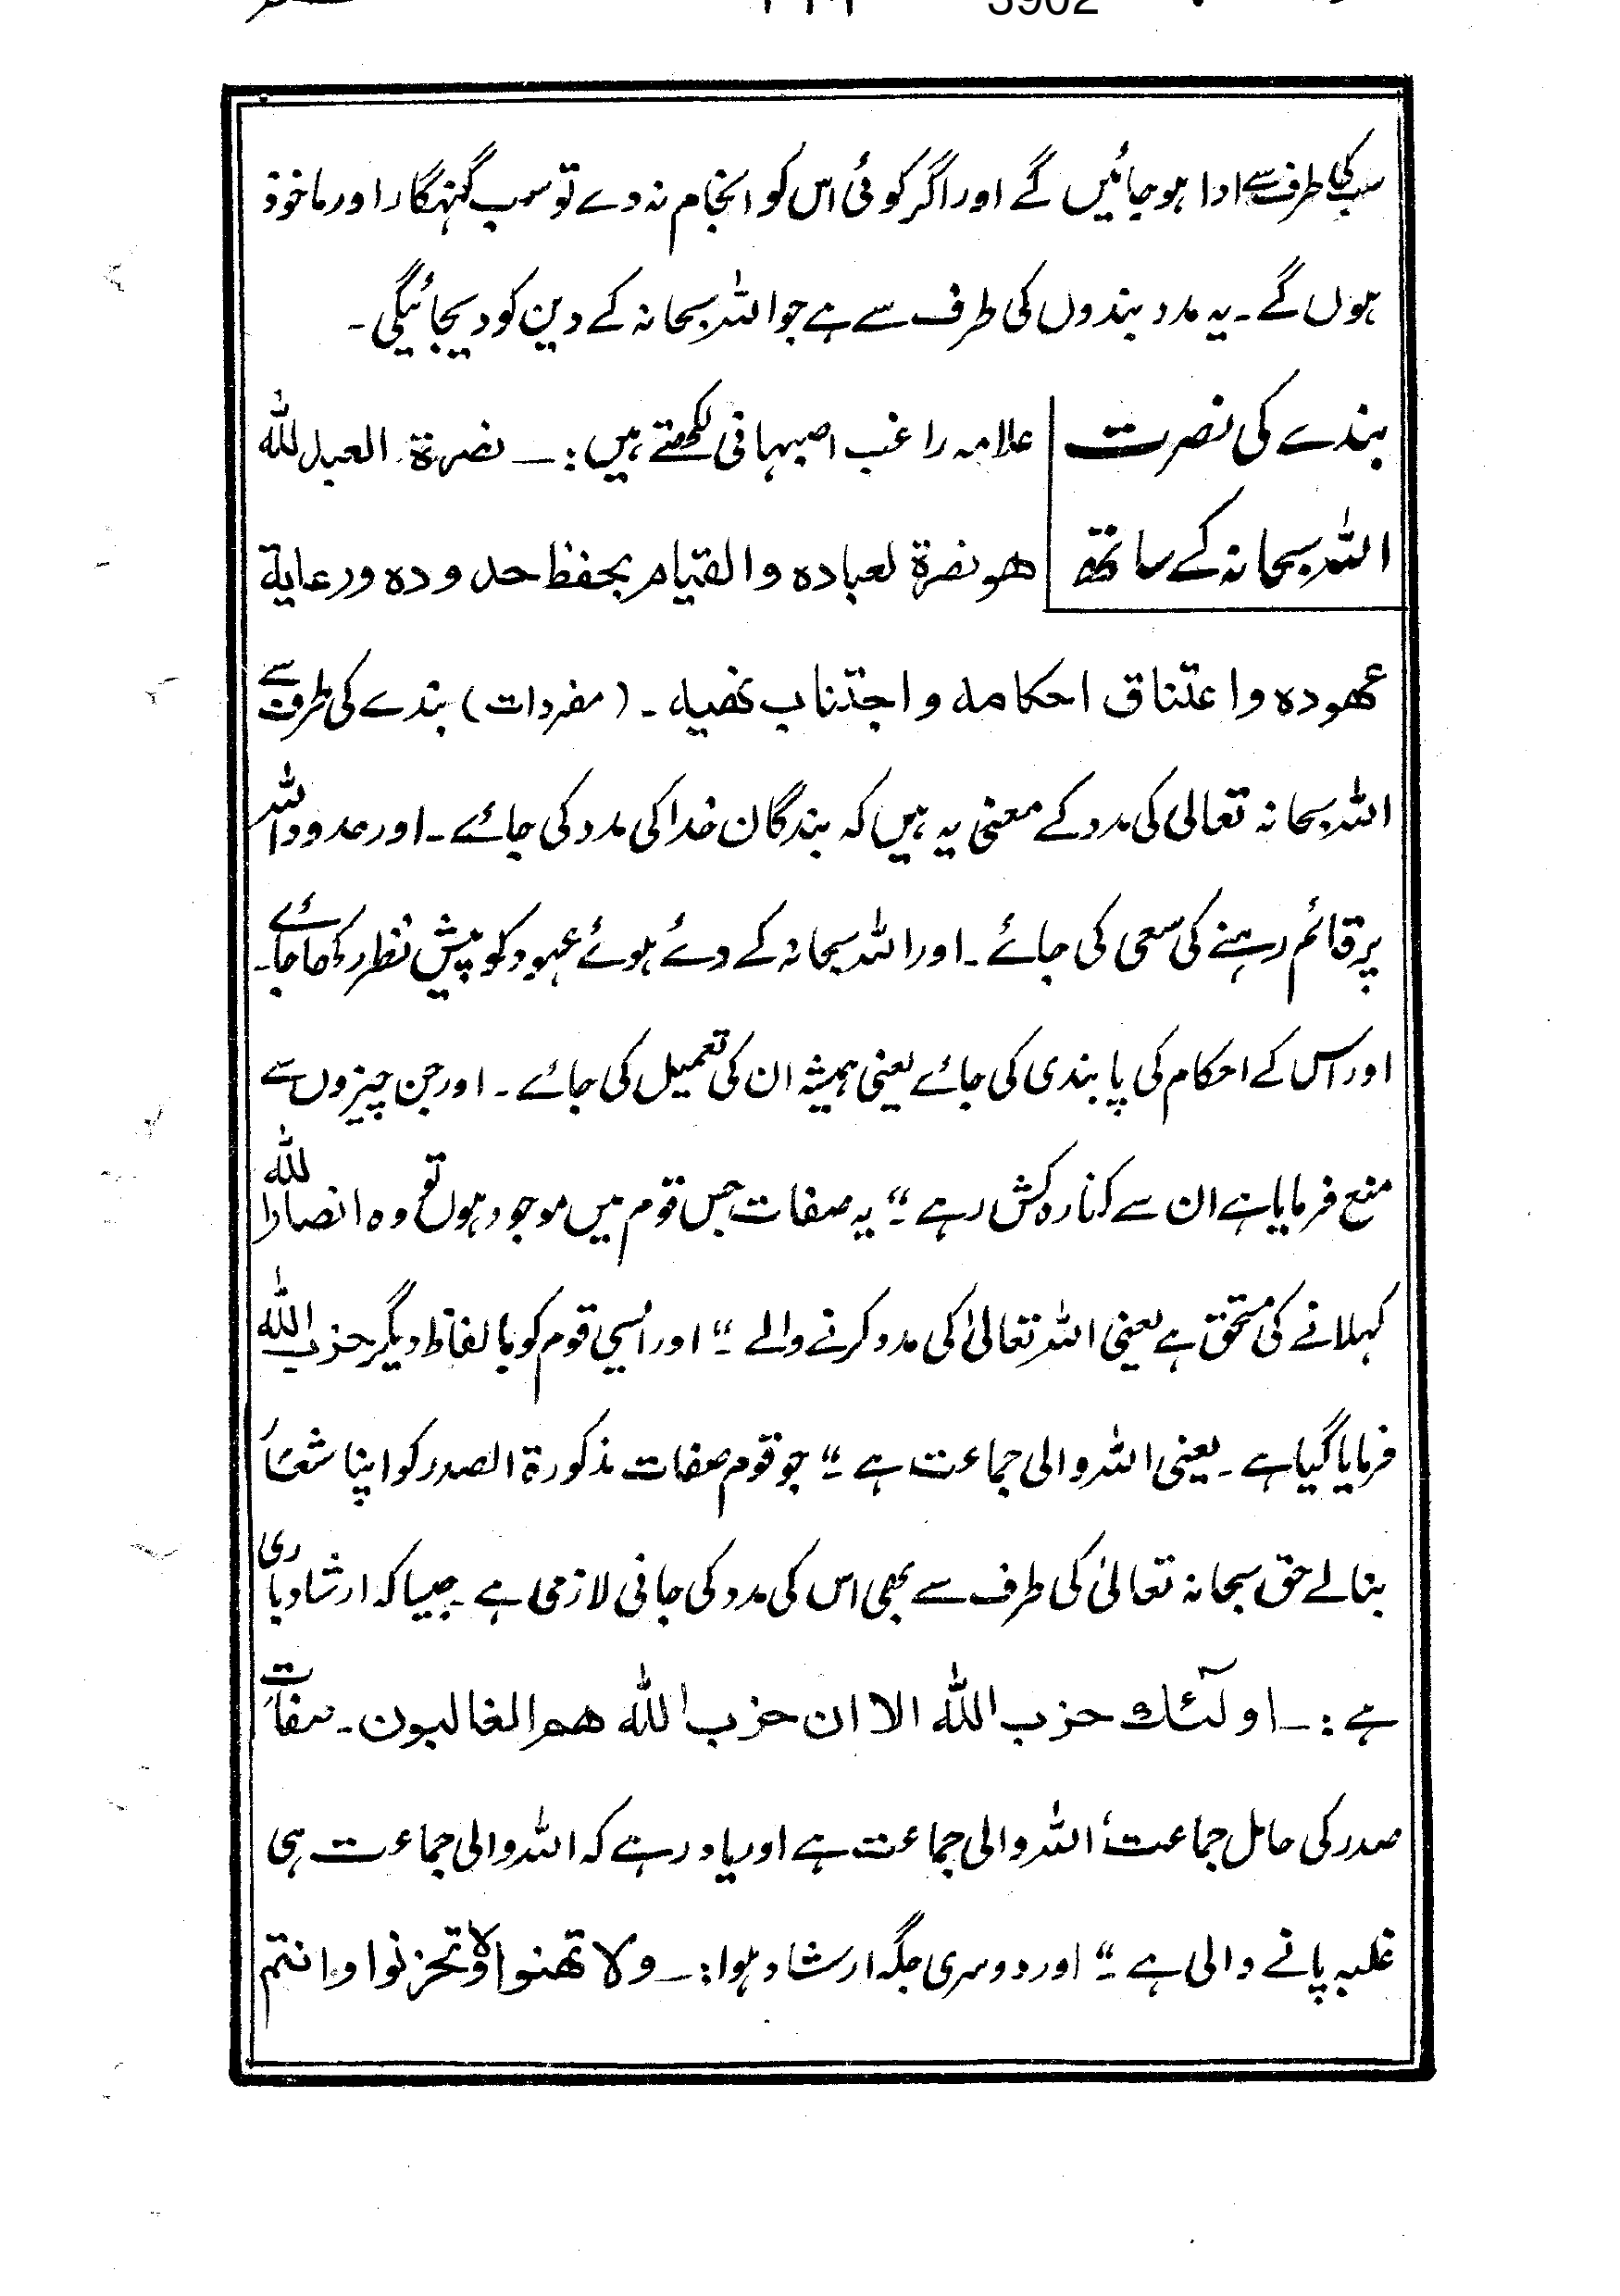 3902
سب کی طرف سے ادا ہو جائیں گے اور اگر کوئی اس کو انجام نہ دے تو سب گنہگار اور ماخوذ
ہوں گے ۔ یہ مدد بندوں کی طرف سے ہے جو اللہ سبحانہ کے دین کو دیجائیگی ۔
بندے کی نصرت
اللہ سبحانہ کے ساتھ
علامہ راغب اصبہانی لکھتے ہیں :۔ نصرة العبد للہ
ھو نصرة لعبادہ والقیام بحفظ حدودہ ورعایة
عھودہ واعتناق احکامہ واجتناب نھیہ ۔ (مفردات) بندے کی طرف سے
اللہ سبحانہ تعالی کی مدد کے معنی یہ ہیں کہ بندگان خدا کی مدد کی جائے ۔ اور حدود اللہ
پر قائم رہنے کی سعی کی جائے ۔ اور اللہ سبحانہ کے دئے ہوئے عہود کو پیش نظر رکھا جائے ۔
اور اس کے احکام کی پابندی کی جائے یعنی ہمیشہ ان کی تعمیل کی جائے ۔ اور جن چیزوں سے
منع فرمایا ہے ان سے کنارہ کش رہے ۔“ یہ صفات جس قوم میں موجود ہوں تو وہ انصار اللہ
کہلانے کی مستحق ہے یعنی اللہ تعالیٰ کی مدد کرنے والے ۔“ اور اُسی قوم کو بالفاظ دیگر حزب اللہ
فرمایا گیا ہے ۔ یعنی اللہ والی جماعت ہے ۔“ جو قوم صفات مذکورة الصدر کو اپنا شعار
بنالے حق سبحانہ تعالیٰ کی طرف سے بھی اس کی مدد کی جانی لازمی ہے ۔ جیسا کہ ارشاد باری
ہے :۔ اولٓئک حزب اللہ الا ان حزب اللہ ھم الغالبون ۔ صفات
صدر کی حامل جماعت، اللہ والی جماعت ہے اور یاد رہے کہ اللہ والی جماعت ہی
غلبہ پانے والی ہے ۔“ اور دوسری جگہ ارشاد ہوا :۔ ولا تھنوا ولا تحزنوا وانتم